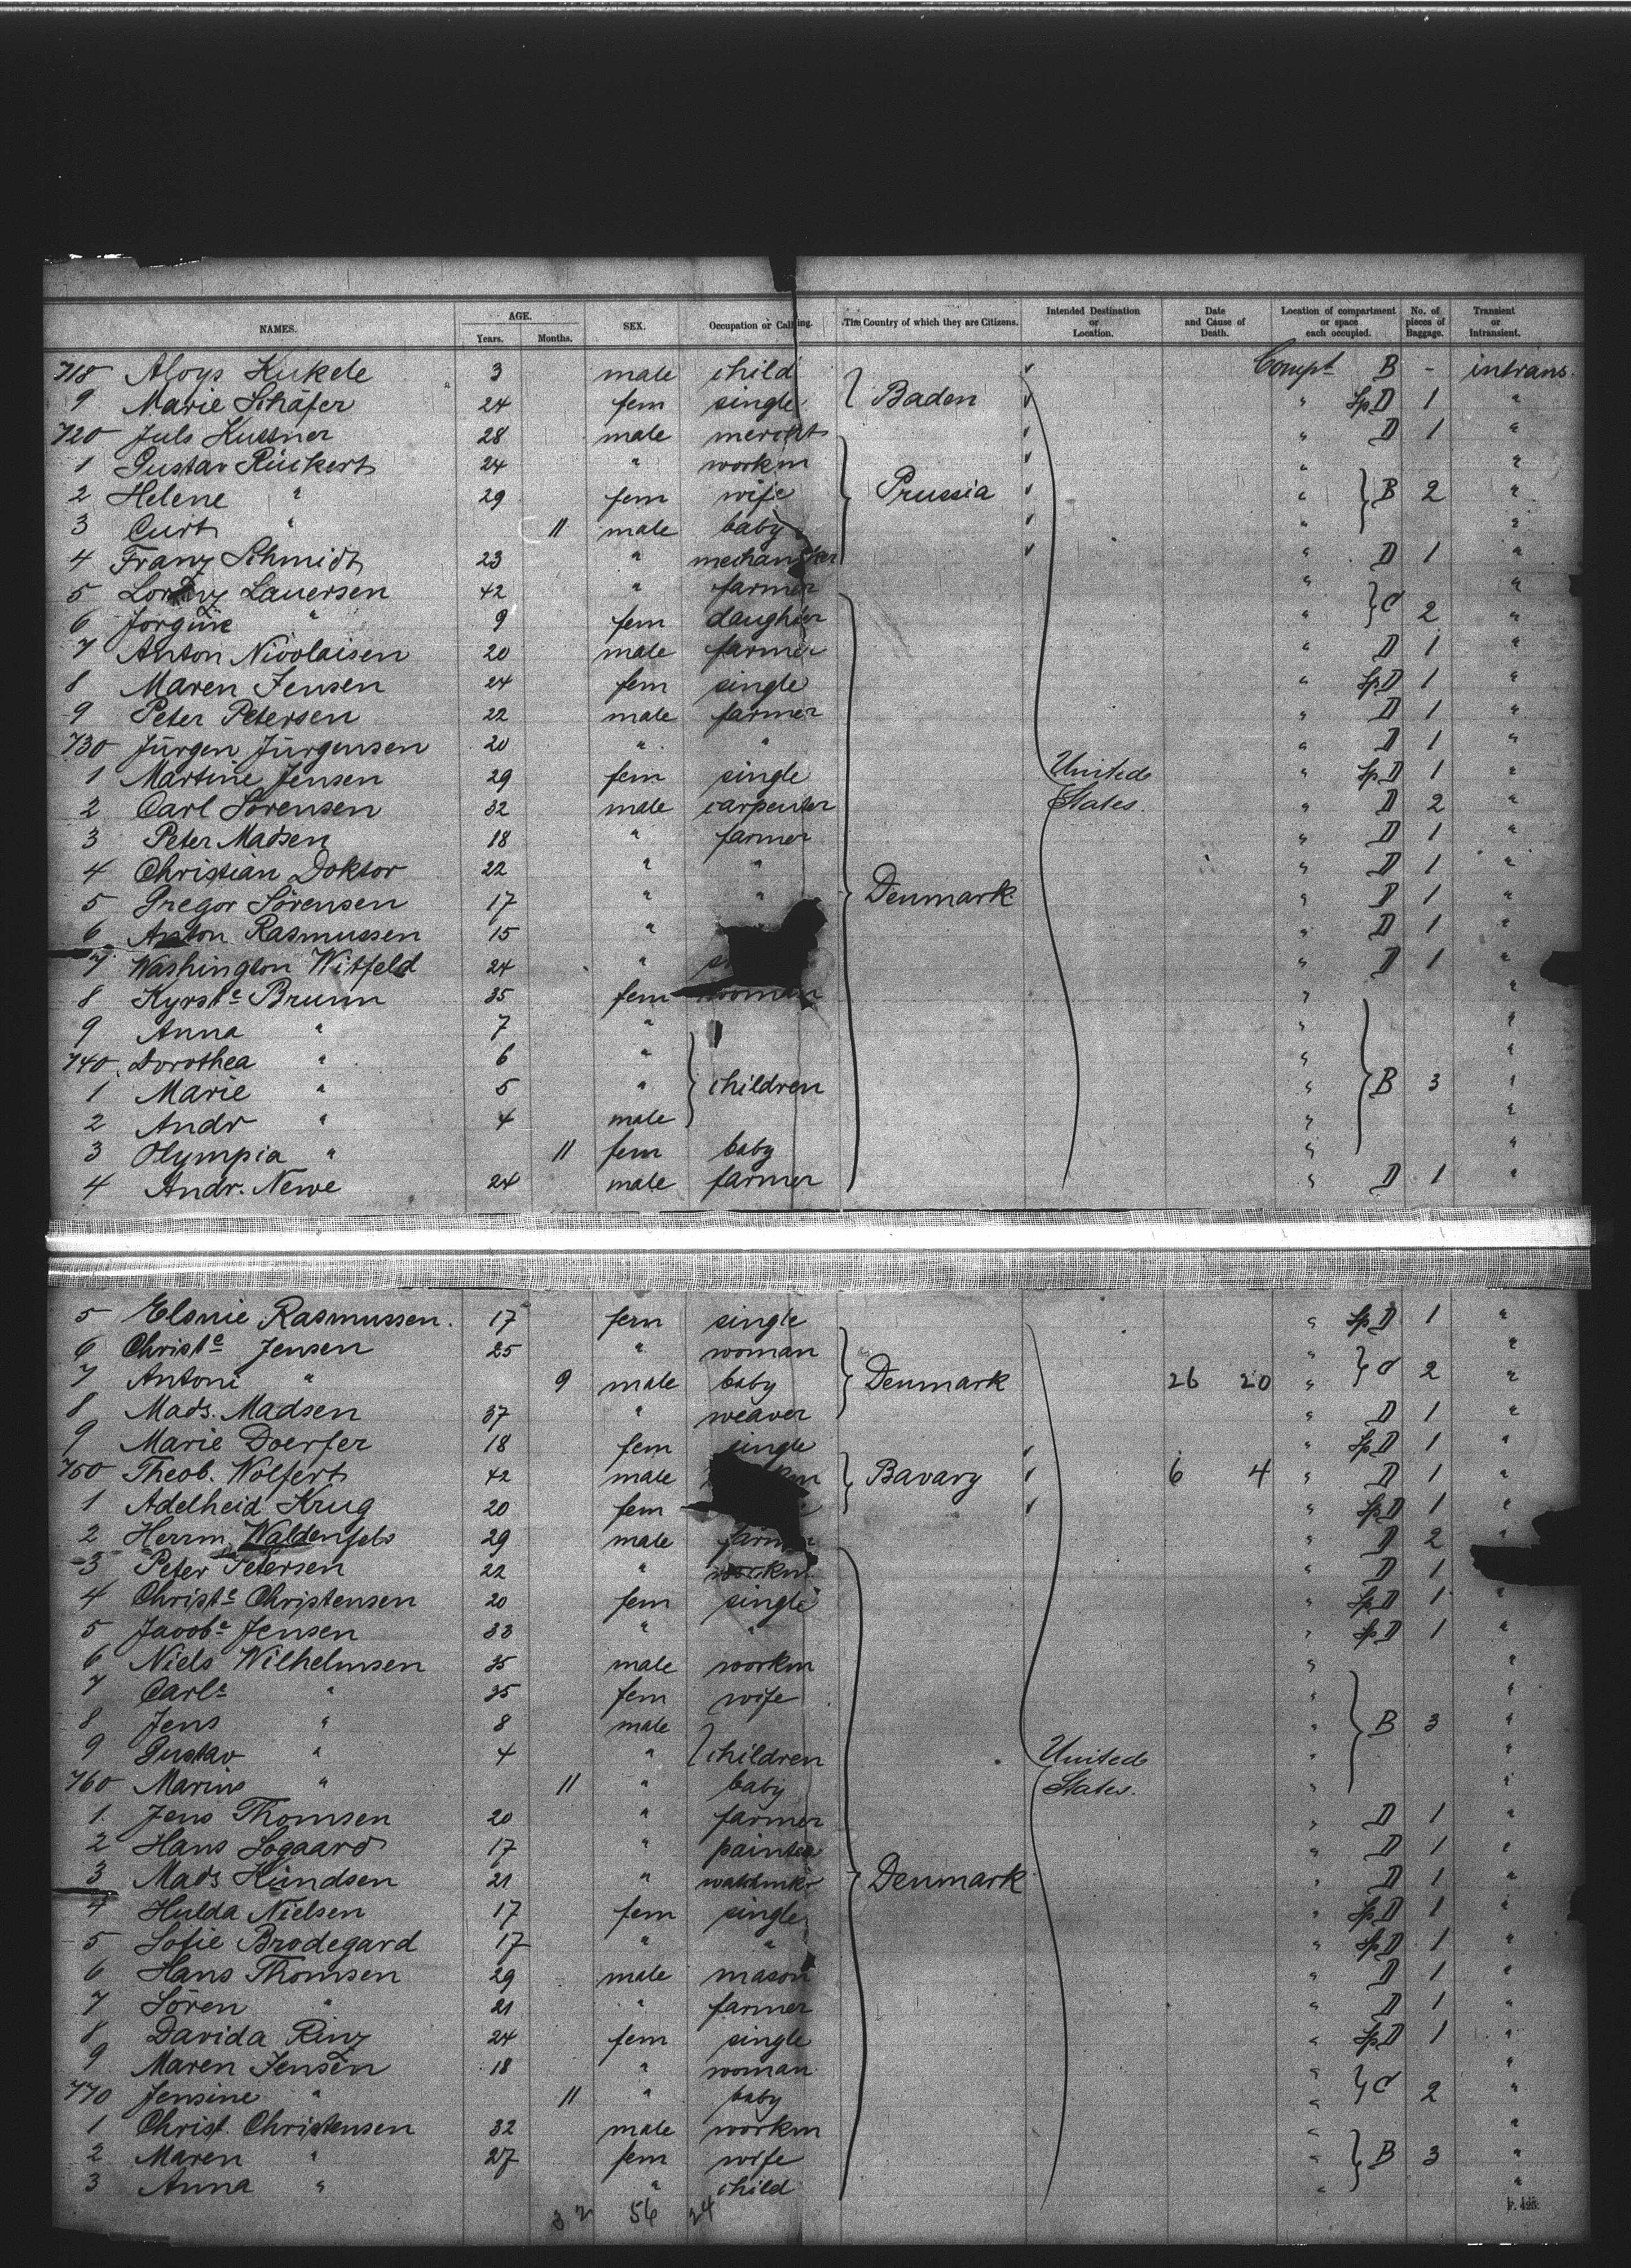 NAMES. AGE. Years. Months. SEX. Occupation or Calling. The Country of which they are Citizens. Intended Destination or Location. Date and Cause of Death. Location of compartment or space each occupied. No. of pieces of Baggage. Transient or Intransient.
718 Aloys Kukele 3 male child Compt B - intrans.
9 Marie Schäfer 24 fem single Baden " Sp D 1 "
720 Juls Kussner 28 male mercht " D 1 "
1 Gustav Rückert 24 " workm " "
2 Helene " 29 fem wife Prussia " B 2 "
3 Curt " 11 male baby " "
4 Franz Schmidt 23 " " D 1 "
5 Lorenz Lauersen 42 " farmer " "
6 Jörgine " 9 fem daughter " C 2 "
7 Anton Nicolaisen 20 male farmer " D 1 "
8 Maren Jensen 24 fem single " Sp D 1 "
9 Peter Petersen 22 male farmer " D 1 "
730 Jürgen Jürgensen 20 " " " D 1 "
1 Martine Jensen 29 fem single United " Sp D 1 "
2 Carl Sörensen 32 male carpenter States. " D 2 "
3 Peter Madsen 18 " farmer " D 1 "
4 Christian Doktor 22 " " " D 1 "
5 Gregor Sörensen 17 " " Denmark " D 1 "
6 Anton Rasmussen 15 " " D 1 "
7 Washington Witfeld 24 " " D 1 "
8 Kyrste Brunn 35 fem woman " "
9 Anna " 7 " " "
740 Dorothea " 6 " " "
1 Marie " 5 " children " B 3 "
2 Andr " 4 male " "
3 Olympia " 11 fem baby " "
4 Andr. Newe 24 male farmer " D 1 "
5 Elsnie Rasmussen. 17 fem single " Sp D 1 "
6 Christe Jensen 25 " woman " "
7 Antoni " 9 male baby Denmark 26 20 " C 2 "
8 Mads. Madsen 37 " weaver " D 1 "
9 Marie Doerfer 18 fem single " Sp D 1 "
750 Theob. Wolfert 42 male Bavary 6 4 " D 1 "
1 Adelheid Krug 20 fem " Sp D 1 "
2 Herrm. Waldenfels 29 male farmer " D 2 "
3 Peter Petersen 22 " workm " D 1
4 Christe Christensen 20 fem single " Sp D 1 "
5 Jacobe Jensen 33 " " " Sp D 1 "
6 Niels Wilhelmsen 35 male workm " "
7 Carle " 35 fem wife " "
8 Jens " 8 male " B 3 "
9 Gustav " 4 " children United " "
760 Marius " 11 " baby States. " "
1 Jens Thomsen 20 " farmer " D 1 "
2 Hans Sogaard 17 " painter " D 1 "
3 Mads Kundsen 21 " Denmark " D 1 "
4 Hulda Nielsen 17 fem single " Sp D 1 "
5 Sofie Brodegard 17 " " " Sp D 1 "
6 Hans Thomsen 29 male mason " D 1 "
7 Sören " 21 " farmer " D 1 "
8 Davida Rinz 24 fem single " Sp D 1 "
9 Maren Jensen 18 " woman " "
770 Jensine " 11 " baby " C 2 "
1 Christ. Christensen 32 male workm " "
2 Maren " 27 fem wife " B 3 "
3 Anna " " child " "
32 56 24